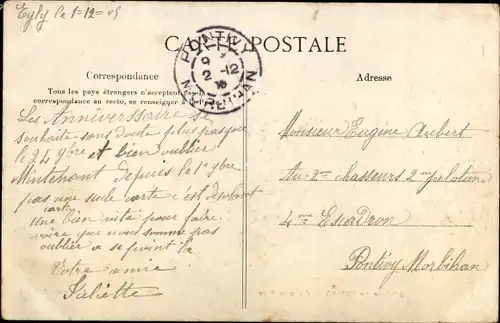 Egly le 1-12-05
CARTE POSTALE
PONTIVY
9
2 -12
MORBIHAN
Correspondance
Tous les pays étrangers n'acceptent pas la
correspondance au recto, se renseigner à la
Les Anniverssaire se
souhaite sans doute plus pasque
le 24 9bre et bien oublier
Mintenant depuis le 1er 9bre
pas une seule carte c'est
carte
Une bien vite pour faire
voire que nous somme pas
oublier a se point la
Votre amie
Juliette
Adresse
Monsieur Eugène Aubert
Au 2me chasseurs 2me peloton
4me Escadron
Pontivy Morbihan